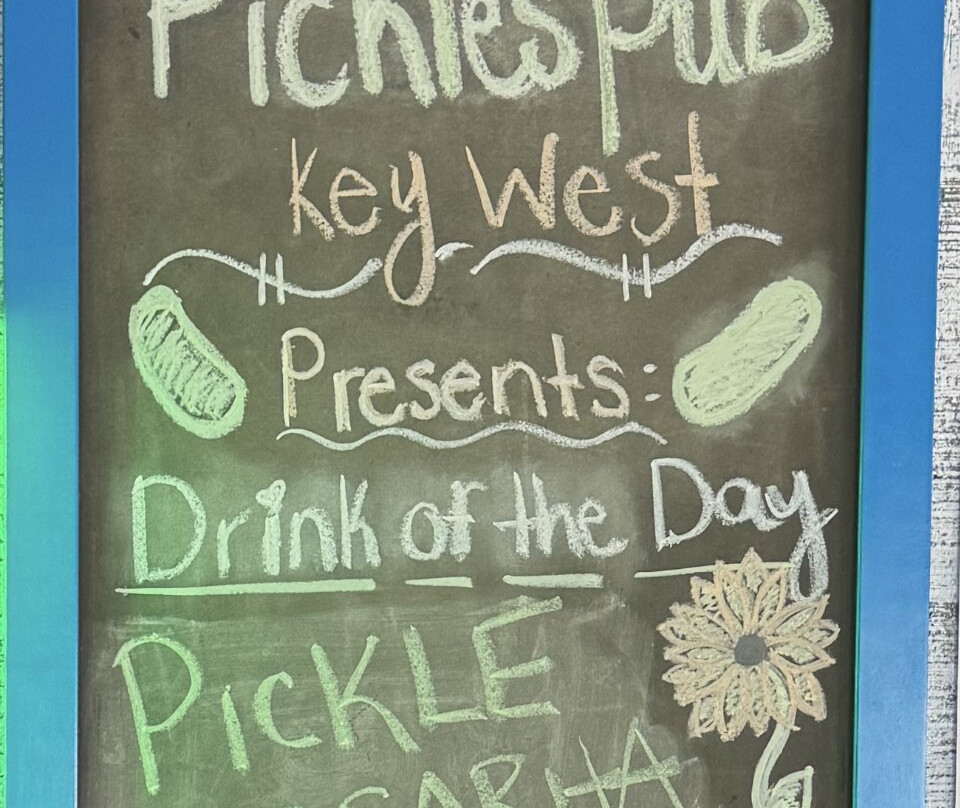 Pickles Pub
Key West
Presents:
Drink of the Day
PiCKLE